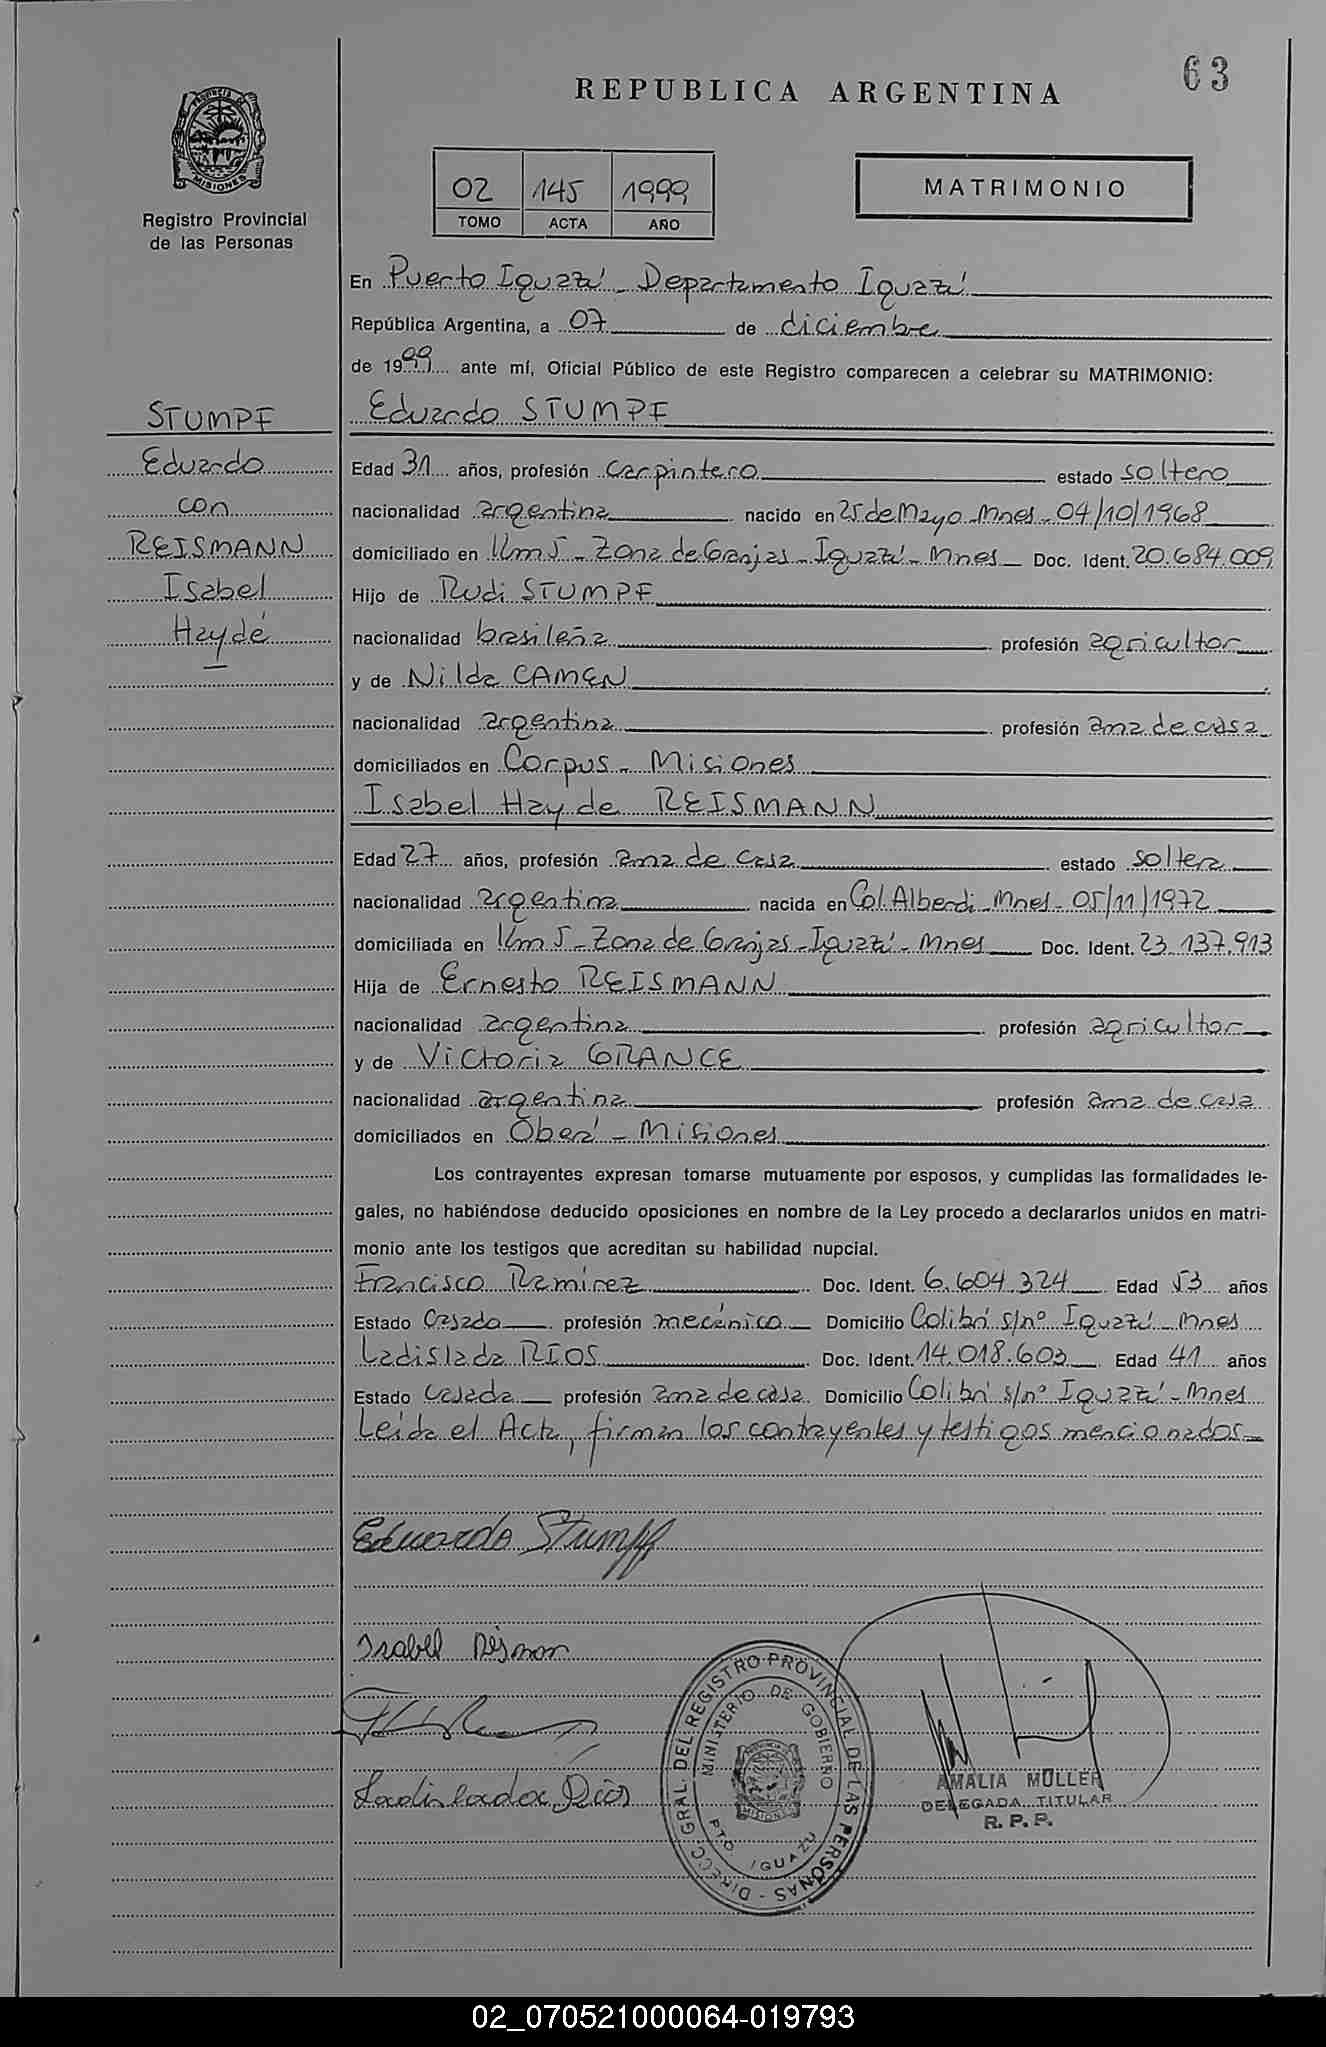 63
REPUBLICA ARGENTINA
PROVINCIA DE
MISIONES
Registro Provincial
de las Personas
02 145 1999
TOMO ACTA AÑO
MATRIMONIO
En Puerto Iguazú - Departamento Iguazú
República Argentina, a 07 de diciembre
de 1999 ante mí, Oficial Público de este Registro comparecen a celebrar su MATRIMONIO:
STUMPF
Eduardo
con
REISMANN
Isabel
Haydé
Eduardo STUMPF
Edad 31 años, profesión carpintero estado soltero
nacionalidad argentina nacido en 25 de Mayo - Mnes - 04/10/1968
domiciliado en Km 5 - Zona de Granjas - Iguazú - Mnes Doc. Ident. 20.684.009
Hijo de Rudi STUMPF
nacionalidad brasileña profesión agricultor
y de Nilda CAMEN
nacionalidad argentina profesión ama de casa
domiciliados en Corpus - Misiones
Isabel Hayde REISMANN
Edad 27 años, profesión ama de casa estado soltera
nacionalidad argentina nacida en Col. Alberdi - Mnes - 05/11/1972
domiciliada en Km 5 - Zona de Granjas - Iguazú - Mnes Doc. Ident. 23.137.913
Hija de Ernesto REISMANN
nacionalidad argentina profesión agricultor
y de Victoria GRANCE
nacionalidad argentina profesión ama de casa
domiciliados en Oberá - Misiones
Los contrayentes expresan tomarse mutuamente por esposos, y cumplidas las formalidades le-
gales, no habiéndose deducido oposiciones en nombre de la Ley procedo a declararlos unidos en matri-
monio ante los testigos que acreditan su habilidad nupcial.
Francisco Ramírez Doc. Ident. 6.604.324 Edad 53 años
Estado Casado profesión mecánico Domicilio Colibrí s/nº Iguazú - Mnes
Ladislada RIOS Doc. Ident. 14.018.603 Edad 41 años
Estado Casada profesión ama de casa Domicilio Colibrí s/nº Iguazú - Mnes
Leída el Acta, firman los contrayentes y testigos mencionados
Eduardo Stumpf
Isabel Reisman
Ladislada Ríos
DIRECC. GRAL. DEL REGISTRO PROVINCIAL DE LAS PERSONAS -
MINISTERIO DE GOBIERNO
PTO. IGUAZU
MISIONES
AMALIA MULLER
DELEGADA TITULAR
R. P. P.
02_070521000064-019793